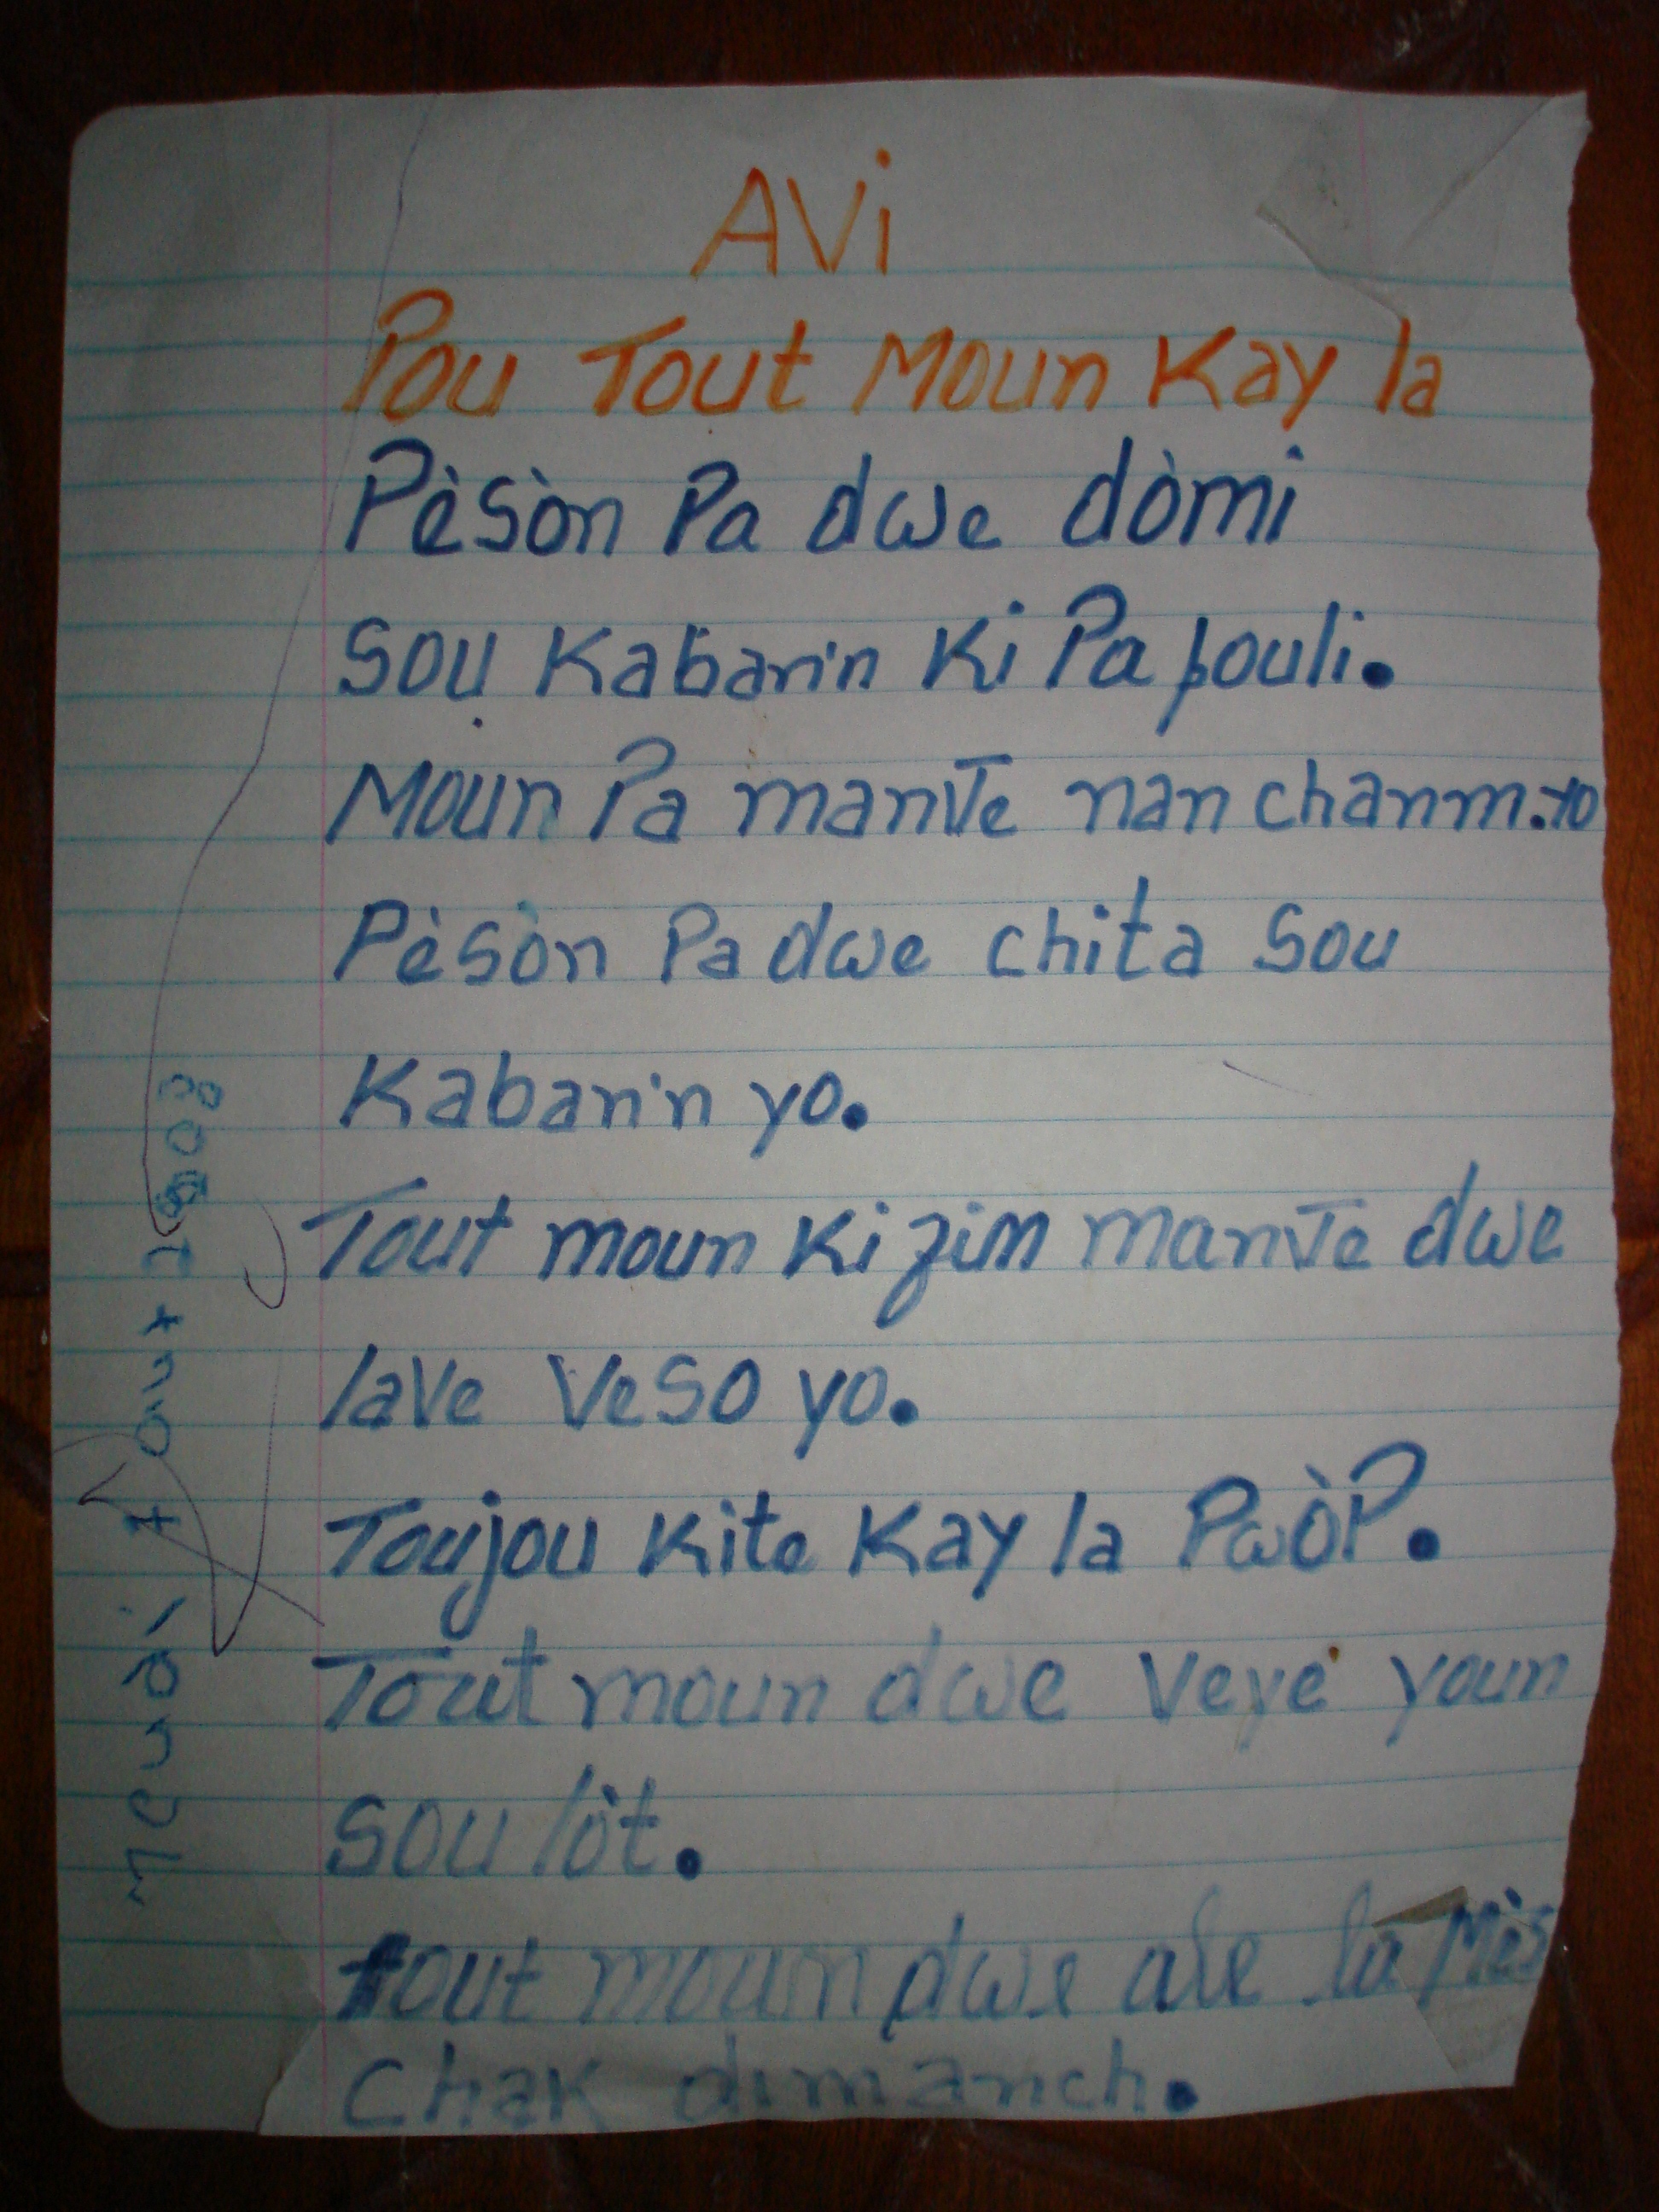 AVi
Pou Tout Moun Kay la
Pèsòn Pa dwe dòmi
Sou Kabann Ki Pa pouli.
Moun Pa mante nan chanm.yo
Pèsòn Pa dwe chita Sou
Kabann yo.
Tout moun Ki jim mante dwe
lave veso yo.
Toujou Kite Kay la PwòP.
Tout moun dwe veye youn
sou lòt.
tout moun dwe ale la Mès
Chak dimanch.